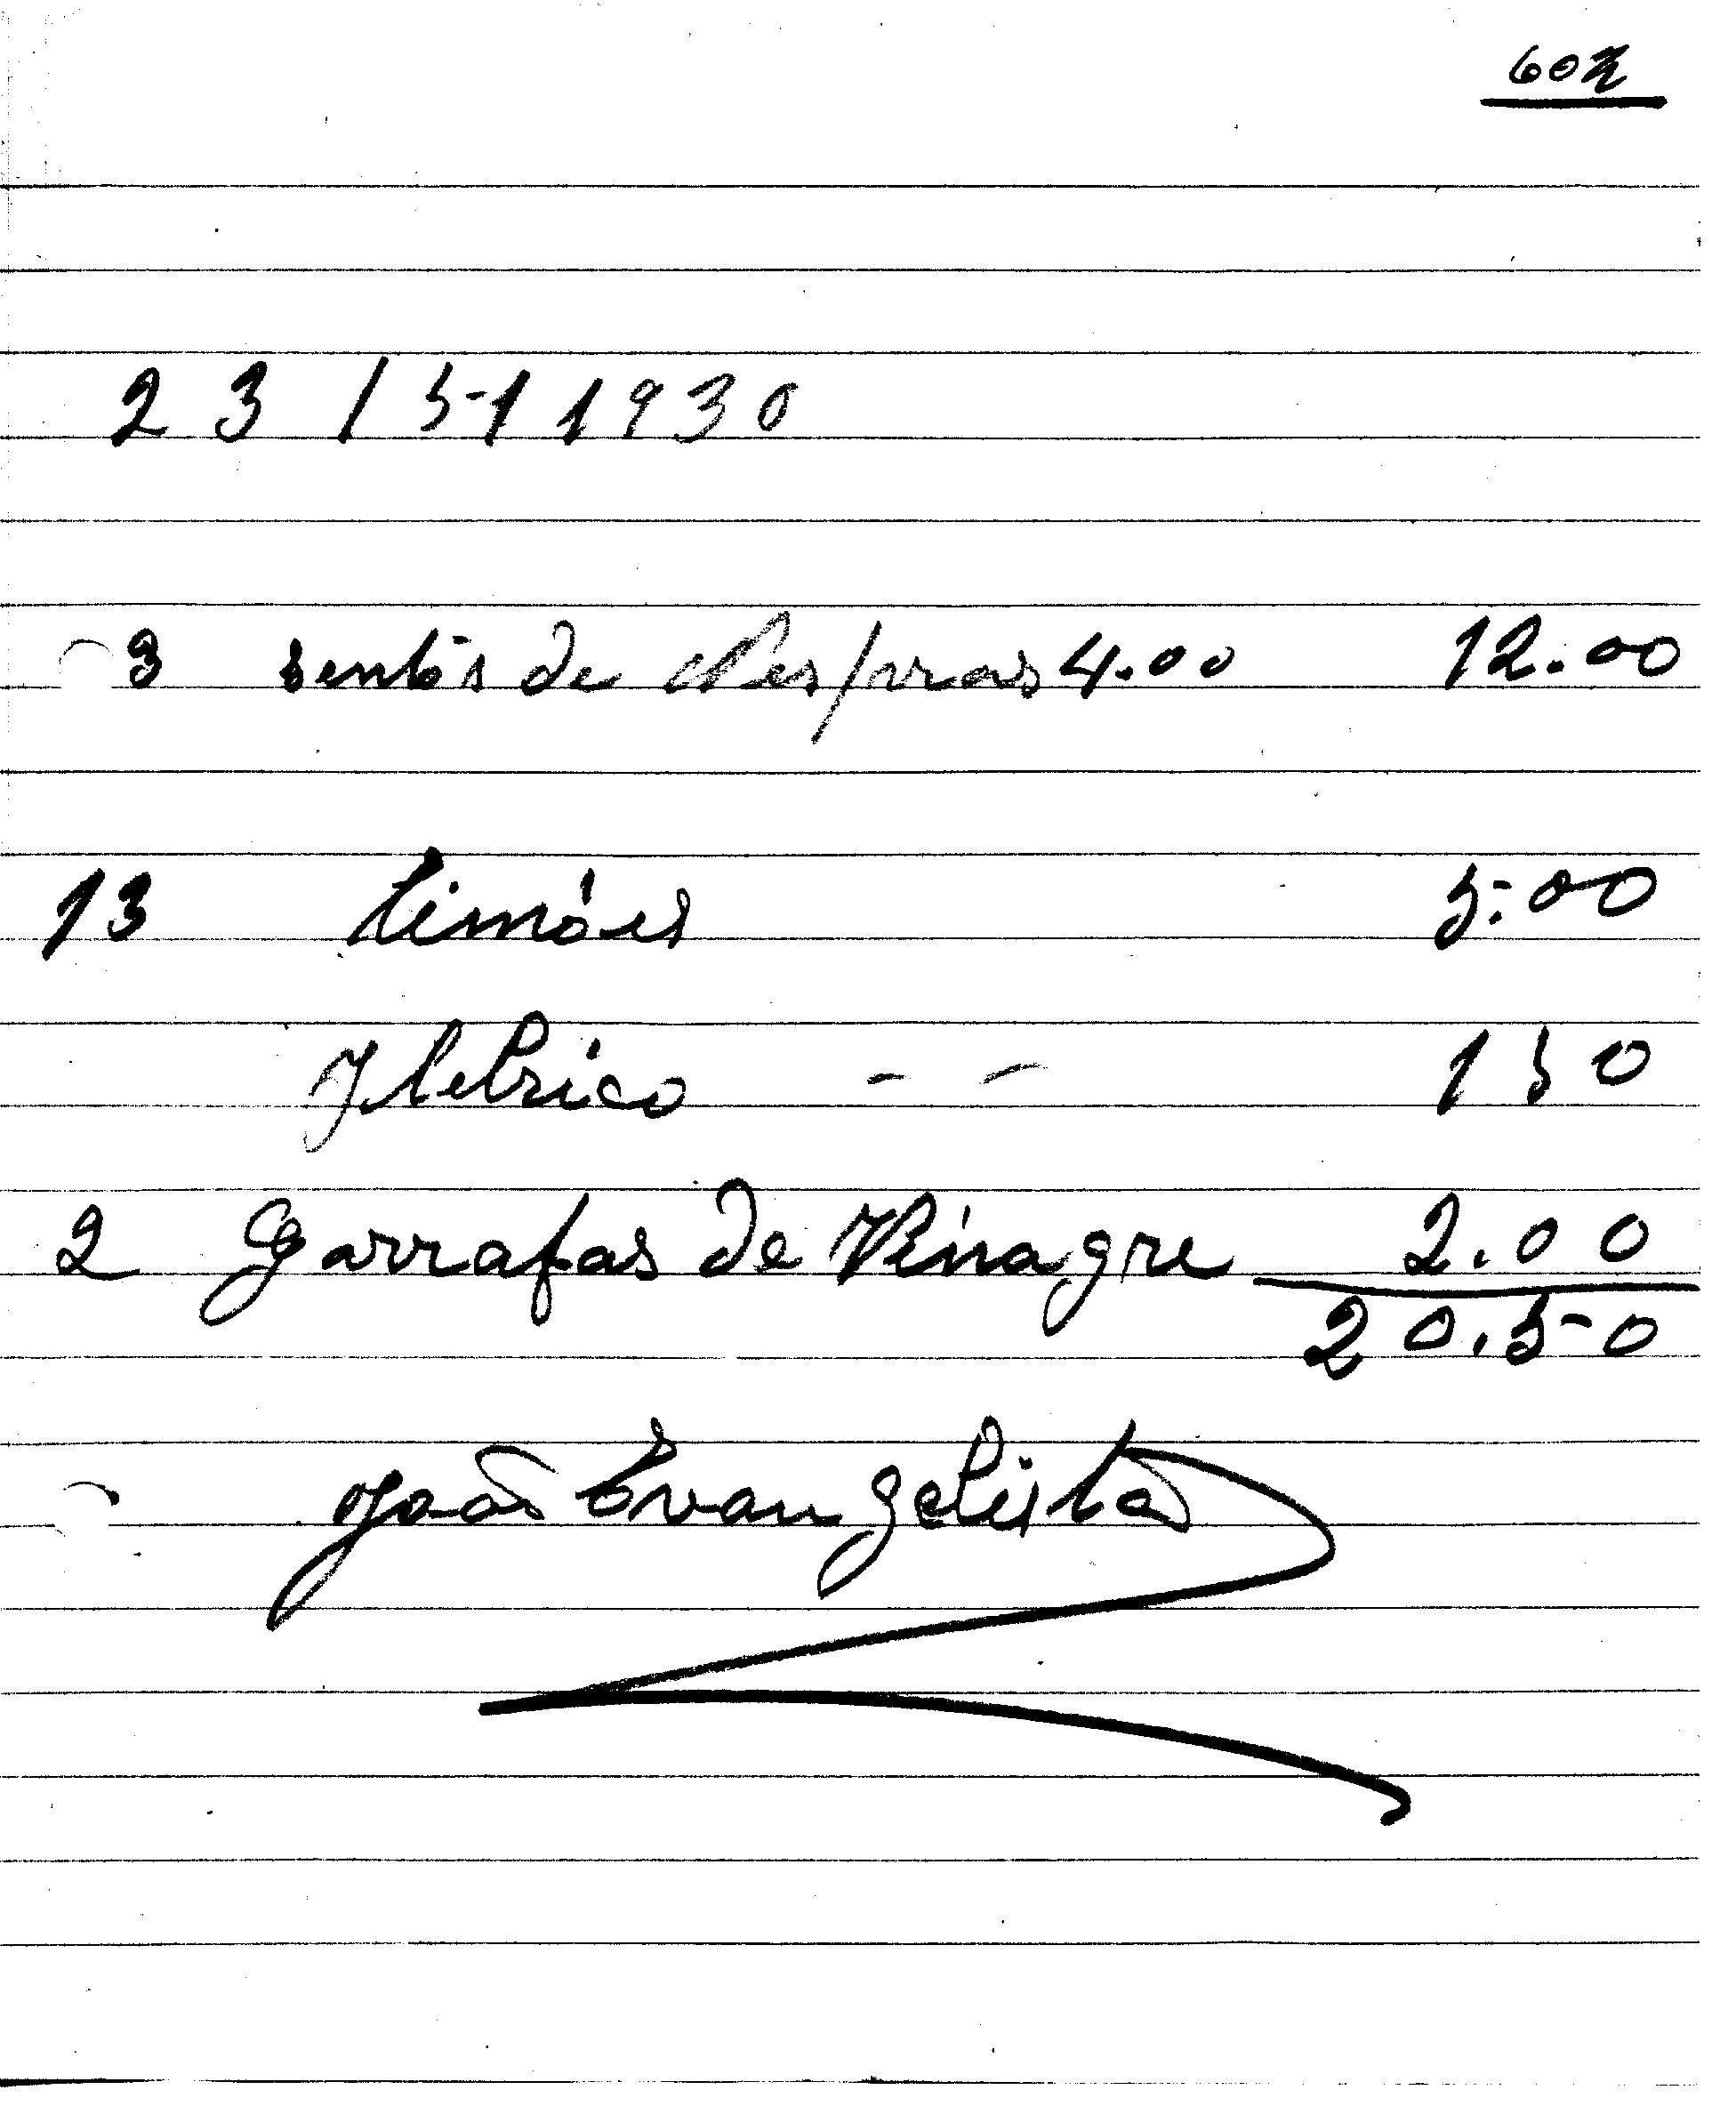 602
23/5/1930
3 sentõs de Nespras 4.00 12.00
13 Limóes 5.00
Iletrico - - 150
2 Garrafas de Vinagre 2.00
20.50
João Evangelista